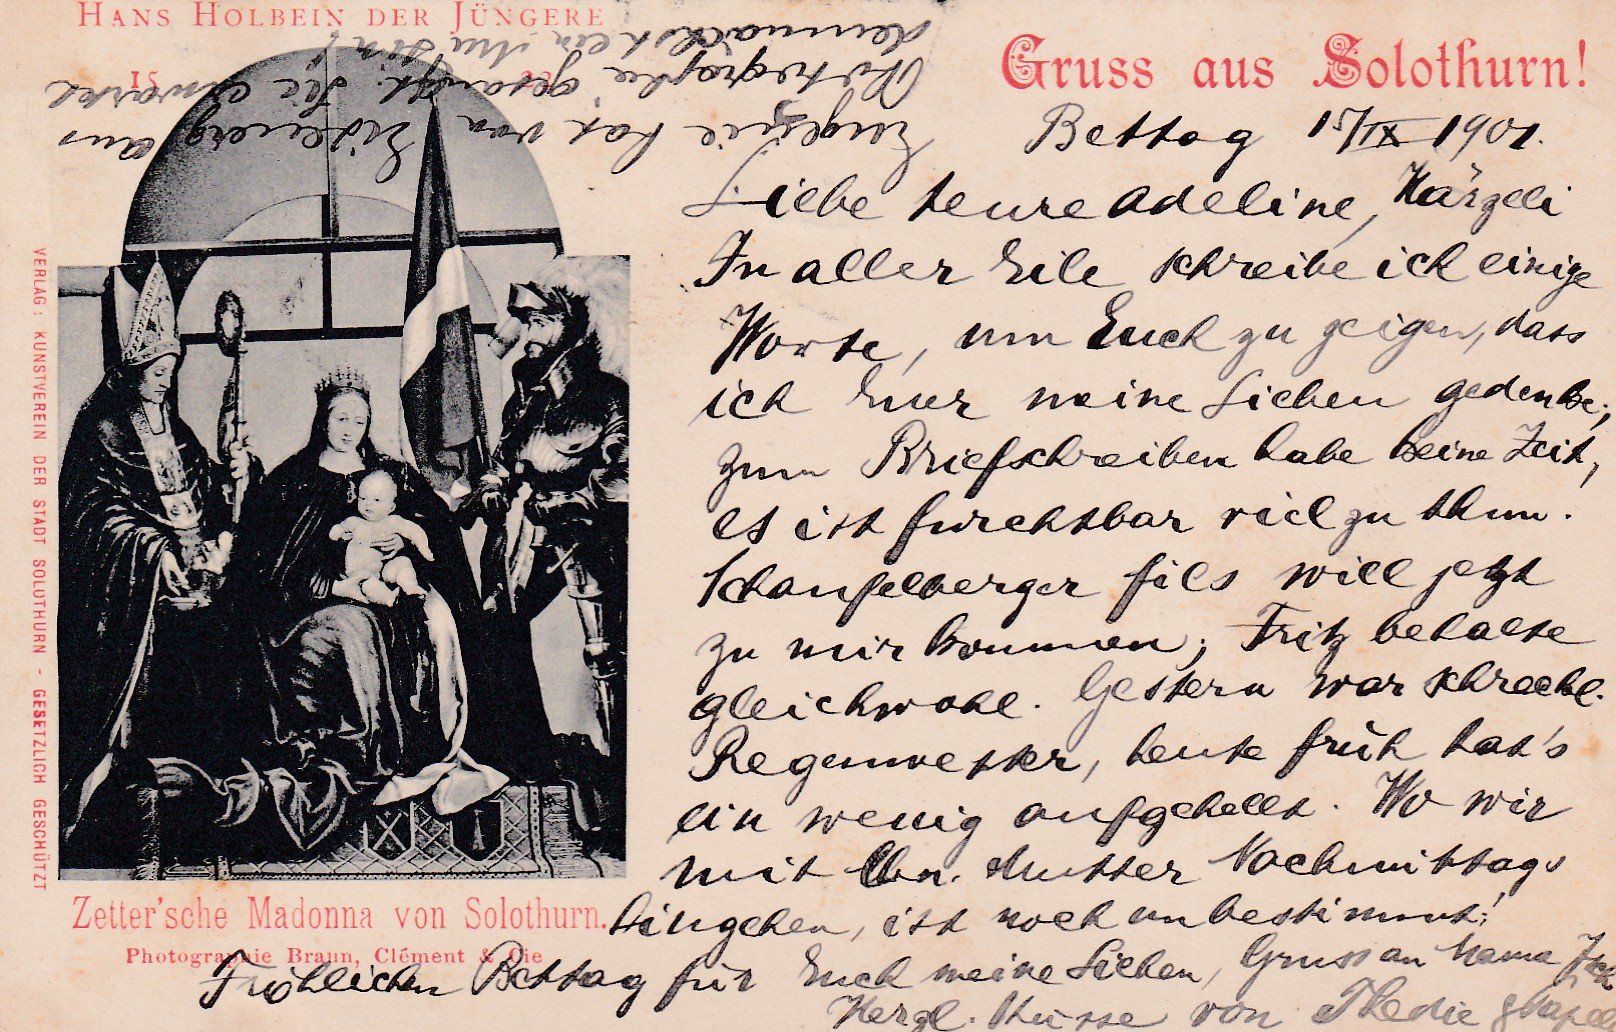 HANS HOLBEIN DER JÜNGERE
15
Gruss aus Solothurn!
Bettag 15/IX 1901.
Liebe teure Adeline, Kärzeli
In aller Eile schreibe ich einige
Worte, um Euch zu zeigen, dass
ich Euer meine Lieben gedenke;
zum Briefschreiben habe keine Zeit,
es ist furchtbar viel zu thun.
Schaufelberger fils will jetzt
zu mir kommen; Fritz behalte
gleichwohl. Gestern war schreckl.
Regenwetter, heute früh hat's
ein wenig aufgehellt. Wo wir
mit lbn. Mutter Nachmittags
hingehen, ist noch unbestimmt!
Fröhlichen Bettag für Euch meine Lieben, Gruss an Mama
Herzl. Küsse von Thedie
Eugenie hat von aus
Photographie gesandt. Sie erwartet
demnächst ein
VERLAG: KUNSTVEREIN DER STADT SOLOTHURN - GESETZLICH GESCHÜTZT
Zetter'sche Madonna von Solothurn.
Photographie Braun, Clément & Cie